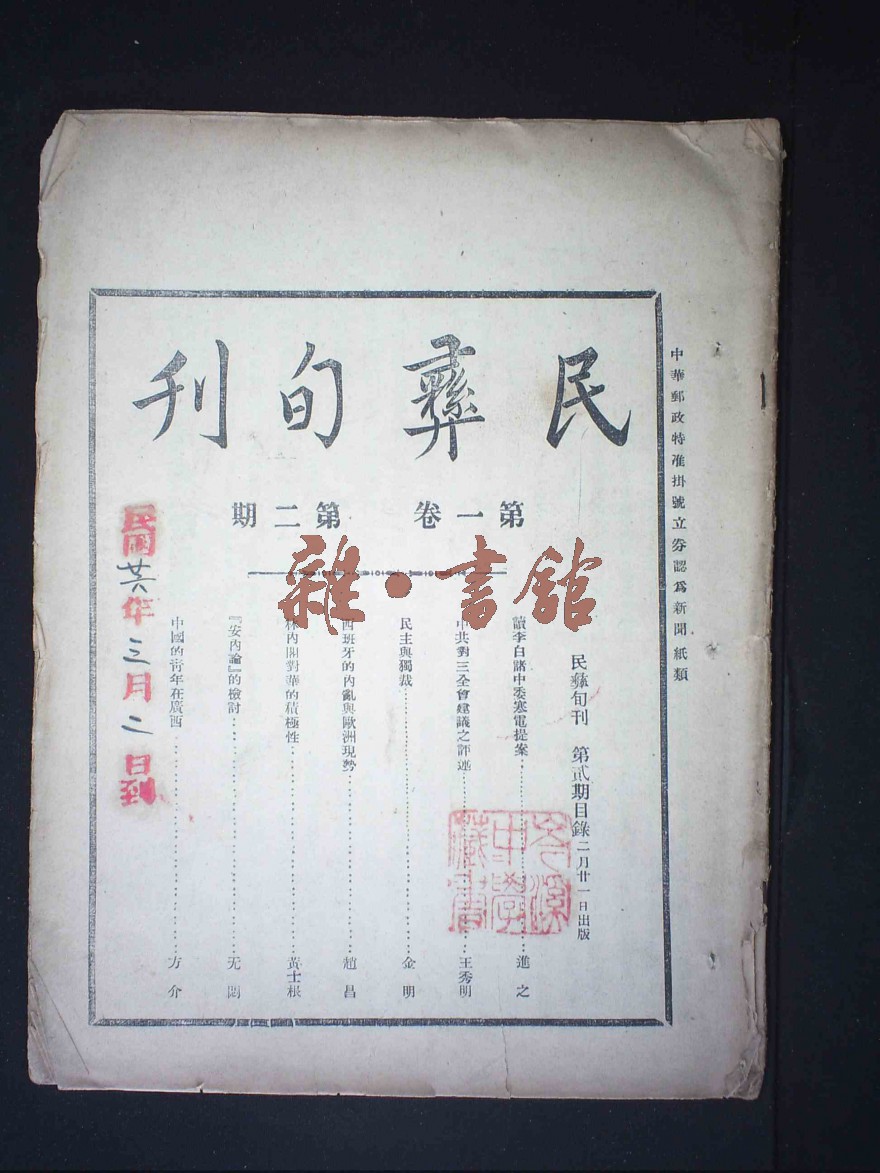 中華郵政特准掛號立券認爲新聞紙類
民彝旬刊
第一卷 第二期
雜·書館
民彝旬刊 第貳期目錄 二月廿一日出版
讀李白諸中委寒電提案……進之
中共對三全會建議之評述……王秀明
民主與獨裁……金明
西班牙的內亂與歐洲現勢……趙昌
林內閣對華的積極性……黃士根
『安內論』的檢討……无悶
中國的青年在廣西……方介
民國廿六年三月二日到
中學
藏書